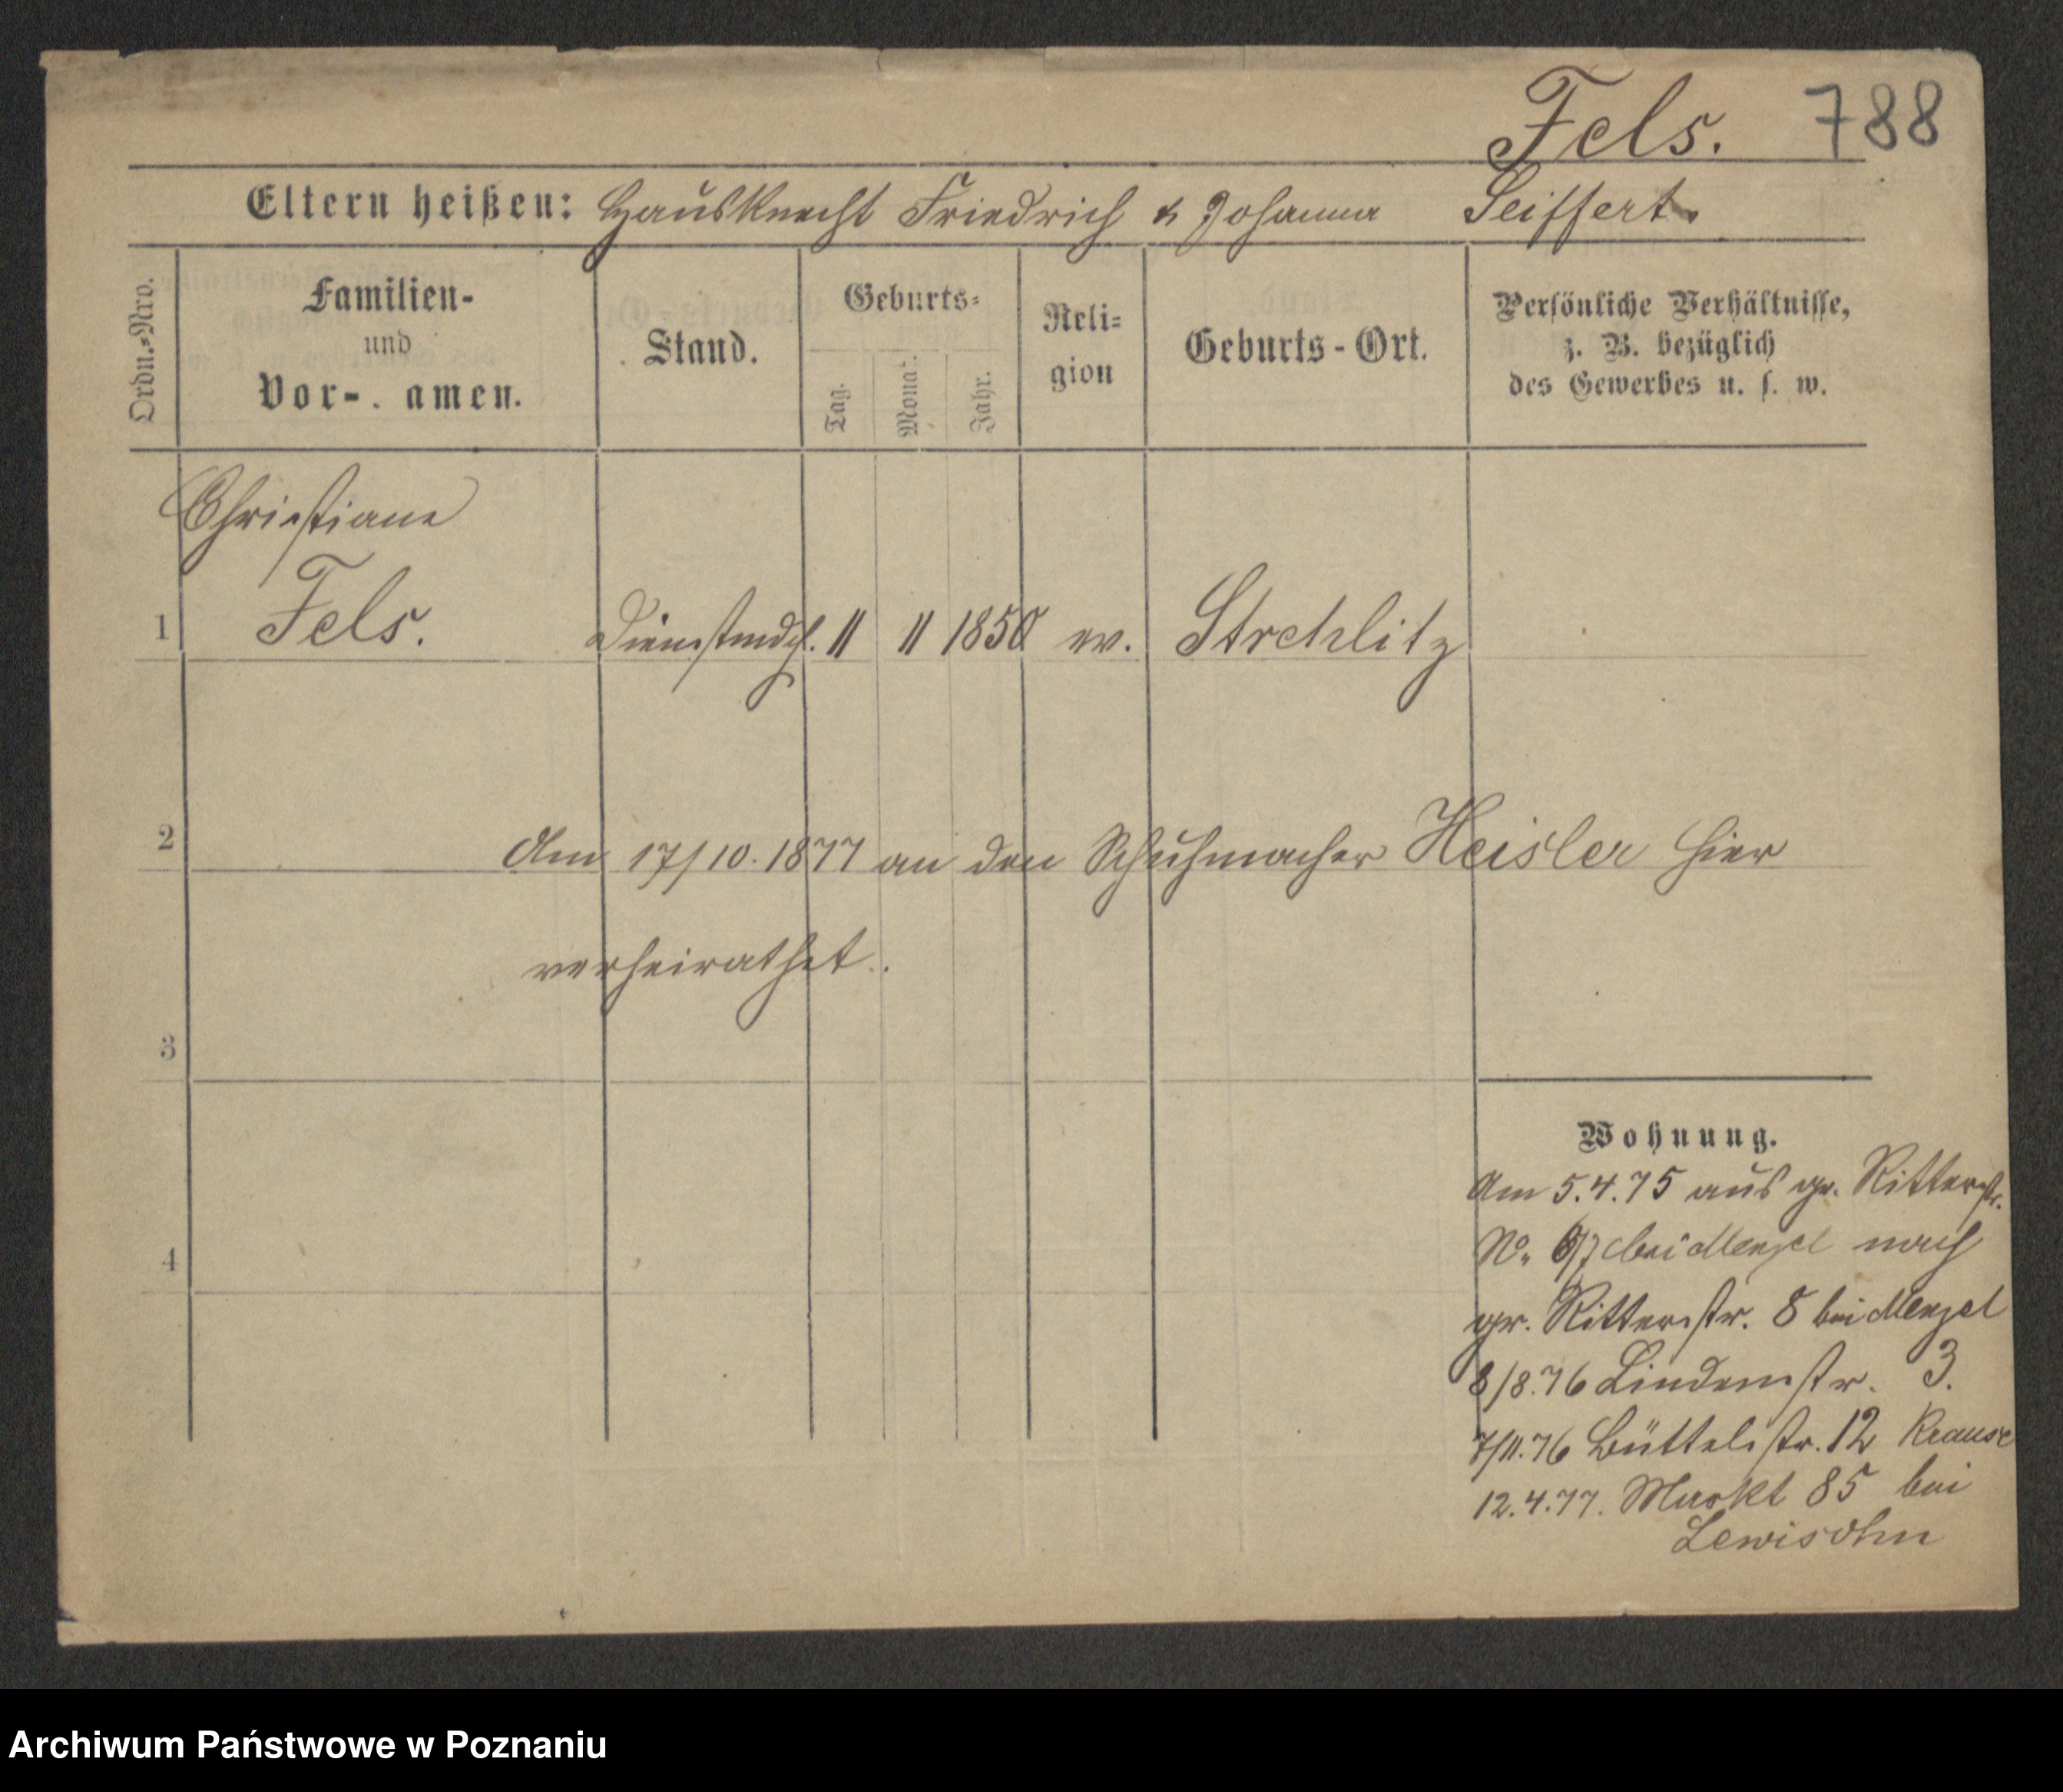 Fels. 788
Eltern heißen: Hausknecht Friedrich & Johanna Seiffert.
Ordn.-Nro.
Familien-
und
Vor- amen.
Stand.
Geburts-
Tag.
Monat.
Jahr.
Reli-
gion
Geburts-Ort.
Persönliche Verhältnisse,
z. B. bezüglich
des Gewerbes u. s. w.
Christiane
1 Fels. Dienstmdch. 11 11 1850 ev. Strehlitz
2 Am 17/10. 1877 an den Schuhmacher Heisler hier
verheirathet.
3
Wohnung.
Am 5.4.75 aus gr. Ritterstr.
No. bei Menzel nach
4
gr. Ritterstr. 8 bei Menzel
8/8.76 Lindenstr. 3.
7/11.76 Büttelstr. 12 Krause
12.4.77. Markt 85 bei
Lewisohn
Archiwum Państwowe w Poznaniu